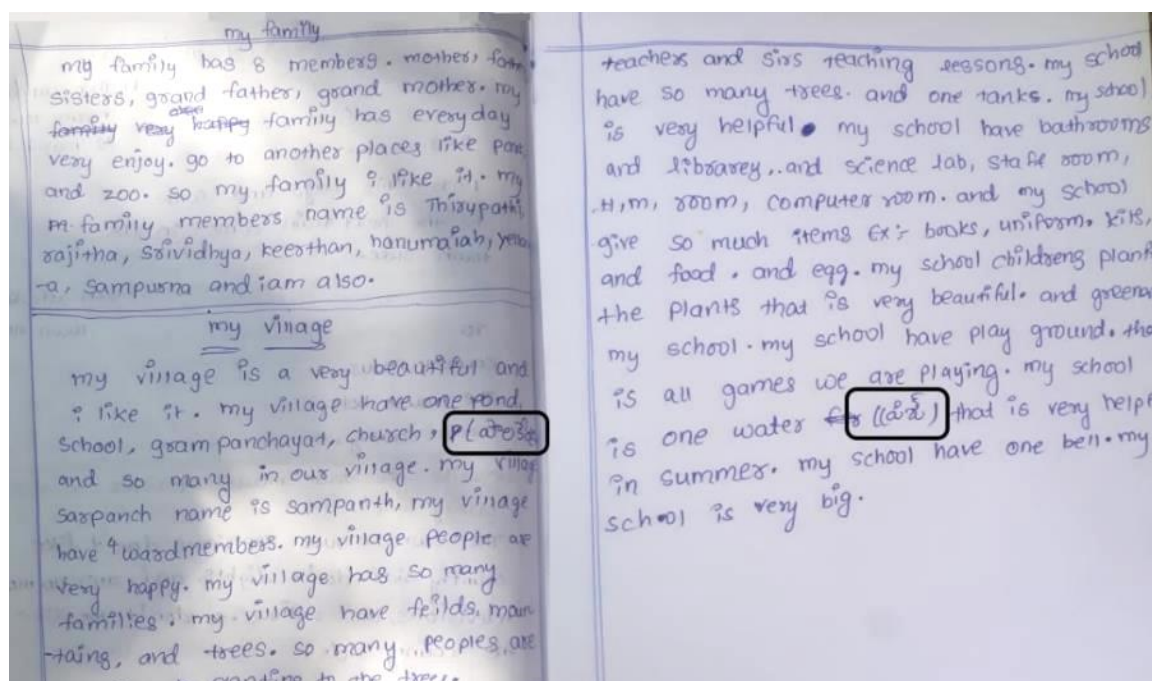 my family
my family has 8 members. mother, fath
sisters, grand father, grand mother. my
family very happy family has everyday
very enjoy. go to another places like park
and zoo. so my family i like it. my
m family members name is Thirupathi,
rajitha, srividhya, keerthan, hanumaiah, yella
-a, sampurna and iam also.
my village
my village is a very beautiful and
i like it. my village have one pond,
school, gram panchayat, church,
and so many in our village. my villag
sarpanch name is sampanth, my village
have 4 wardmembers. my village people are
very happy. my village has so many
families. my village have feilds, moun
-taing, and trees. so many peoples are
planting to the trees.
teachers and sirs teaching lessons. my school
have so many trees. and one tanks. my school
is very helpful. my school have bathrooms
and librarey,. and science lab, staff room,
H,m, room, computer room. and my school
give so much items Ex:- books, uniform, kits,
and food. and egg. my school childrens plant
the plants that is very beautiful. and greena
my school. my school have play ground. tha
is all games we are playing. my school
is one water that is very helpf
in summer. my school have one bell. my
school is very big.